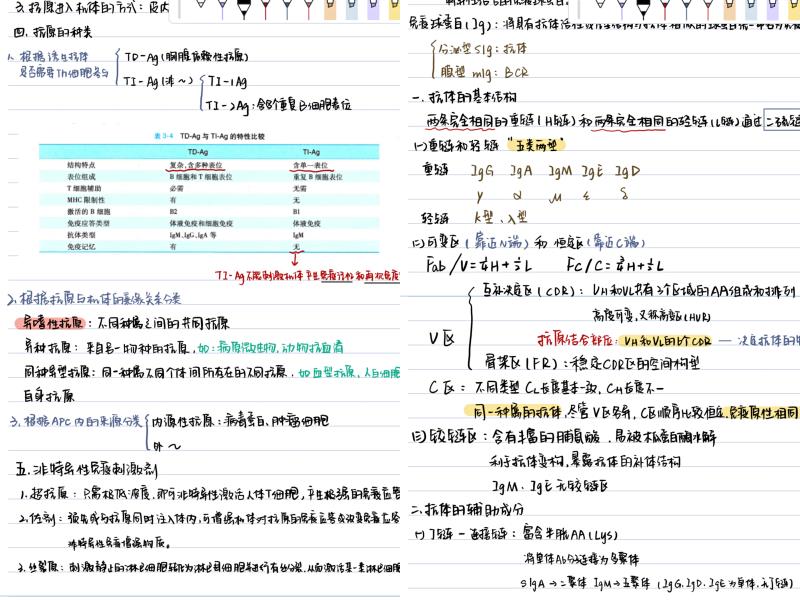 3. 抗原进入机体的方式：皮内
四. 抗原的种类
1. 根据诱生抗体是否需要Th细胞参与
TD-Ag（胸腺依赖性抗原）
TI-Ag（非～）
TI-1Ag
TI-2Ag：含多个重复B细胞表位
表 3-4 TD-Ag 与 TI-Ag 的特性比较
TD-Ag TI-Ag
结构特点 复杂,含多种表位 含单一表位
表位组成 B 细胞和 T 细胞表位 重复 B 细胞表位
T 细胞辅助 必需 无需
MHC 限制性 有 无
激活的 B 细胞 B2 B1
免疫应答类型 体液免疫和细胞免疫 体液免疫
抗体类型 IgM、IgG、IgA 等 IgM
免疫记忆 有 无
TI-Ag不能刺激机体产生免疫记忆和再次免疫
2. 根据抗原与机体的亲缘关系分类
异嗜性抗原：不同种属之间的共同抗原
异种抗原：来自另一物种的抗原，如：病原微生物，动物抗血清
同种异型抗原：同一种属不同个体间所存在的不同抗原，如血型抗原，人白细胞
自身抗原
3. 根据APC内的来源分类
内源性抗原：病毒蛋白、肿瘤细胞
外～
五. 非特异性免疫刺激剂
1. 超抗原：只需极低浓度，即可非特异性激活人体T细胞，产生极强的免疫应答
2. 佐剂：预先或与抗原同时注入体内，可增强机体对抗原的免疫应答或改变免疫应答
非特异性免疫增强物质。
3. 丝裂原：刺激静止的淋巴细胞转化为淋巴母细胞进行有丝分裂，从而激活某一类淋巴细胞
免疫球蛋白（Ig）：将具有抗体活性或化学结构与抗体相似的球蛋白统一命名为免疫
分泌型 sIg：抗体
膜型 mIg：BCR
一. 抗体的基本结构
两条完全相同的重链（H链）和两条完全相同的轻链（L链）通过二硫键
(一)重链和轻链 “五类两型”
重链 IgG IgA IgM IgE IgD
γ α μ ε δ
轻链 κ型、λ型
(二)可变区（靠近N端）和 恒定区（靠近C端）
Fab/V=¼H+½L Fc/C=¾H+½L
V区
互补决定区（CDR）：VH和VL共有3个区域的AA组成和排列
高度可变，又称高变区（HVR）
抗原结合部位：VH和VL的6个CDR — 决定抗体的
骨架区（FR）：稳定CDR区的空间构型
C区：不同类型 CL长度基本一致，CH长度不一
同一种属的抗体，尽管V区各异，C区顺序比较恒定，免疫原性相同
(三)铰链区：含有丰富的脯氨酸，易被木瓜蛋白酶水解
利于抗体变构，暴露抗体的补体结构
IgM、IgE无铰链区
二. 抗体的辅助成分
(一)J链－连接链：富含半胱AA(Lys)
将单体Ab分子连接为多聚体
SIgA→二聚体 IgM→五聚体（IgG、IgD、IgE为单体，无J链）